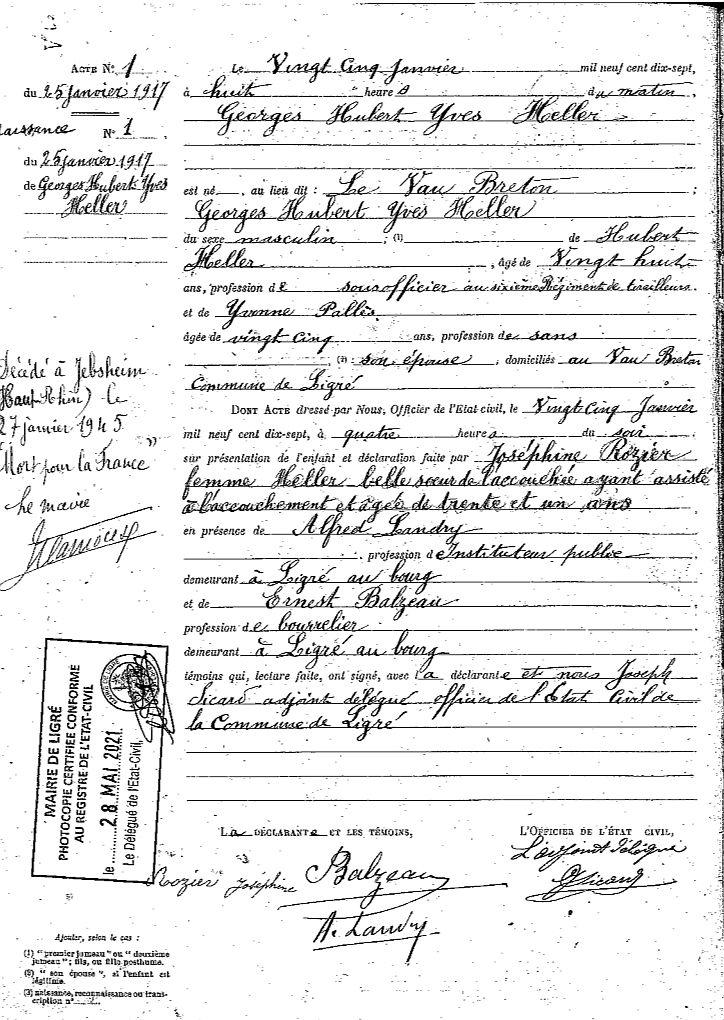 ACTE N° 1
du 25 janvier 1917
aissance N° 1
du 25 janvier 1917
de Georges Hubert Yves
Heller
Décédé à Jebsheim
(Haut-Rhin) le
27 janvier 1945
"Mort pour la France"
Le maire
Le Vingt Cinq Janvier mil neuf cent dix-sept,
à huit heures du matin
Georges Hubert Yves Heller
est né , au lieu dit : Le Vau Breton ;
Georges Hubert Yves Heller
du sexe masculin ; (1) de Hubert
Heller , âgé de Vingt huit
ans, profession de sous officier au sixième Régiment de tirailleurs
et de Yvonne Pallès
âgée de vingt cinq ans, profession de sans
(2) son épouse , domiciliés au Vau Breton
Commune de Ligré
DONT ACTE dressé par Nous, Officier de l'Etat civil, le Vingt Cinq Janvier
mil neuf cent dix-sept, à quatre heures du soir
sur présentation de l'enfant et déclaration faite par Joséphine Rozier
femme Heller belle sœur de l'accouchée ayant assisté
à l'accouchement et âgée de trente et un ans
en présence de Alfred Landry
, profession d'Instituteur public
demeurant à Ligré au bourg
et de Ernest Balzeau
profession de bourrelier
demeurant à Ligré au bourg
témoins qui, lecture faite, ont signé, avec la déclarante et nous Joseph
Sicard adjoint délégué officier de l'Etat Civil de
la Commune de Ligré
LA DÉCLARANTE ET LES TÉMOINS,
Rozier Joséphine
Balzeau
A. Landry
L'OFFICIER DE L'ÉTAT CIVIL,
L'adjoint délégué
Sicard
MAIRIE DE LIGRÉ
PHOTOCOPIE CERTIFIÉE CONFORME
AU REGISTRE DE L'ETAT-CIVIL
le 28 MAI 2021
Le Délégué de l'Etat-Civil,
Ajouter, selon le cas :
(1) "premier jumeau" ou "deuxième
jumeau"; fils, ou fille posthume.
(2) "son épouse", si l'enfant est
légitime.
(3) naissance, reconnaissance ou trans-
cription n°